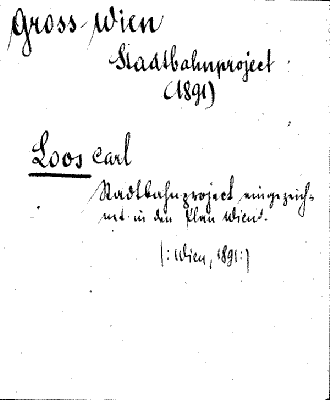 Gross-Wien
Stadtbahnproject
(1891)
Loos Carl
Stadtbahnproject eingezeich=
net in den Plan Wien's.
(: Wien, 1891:)